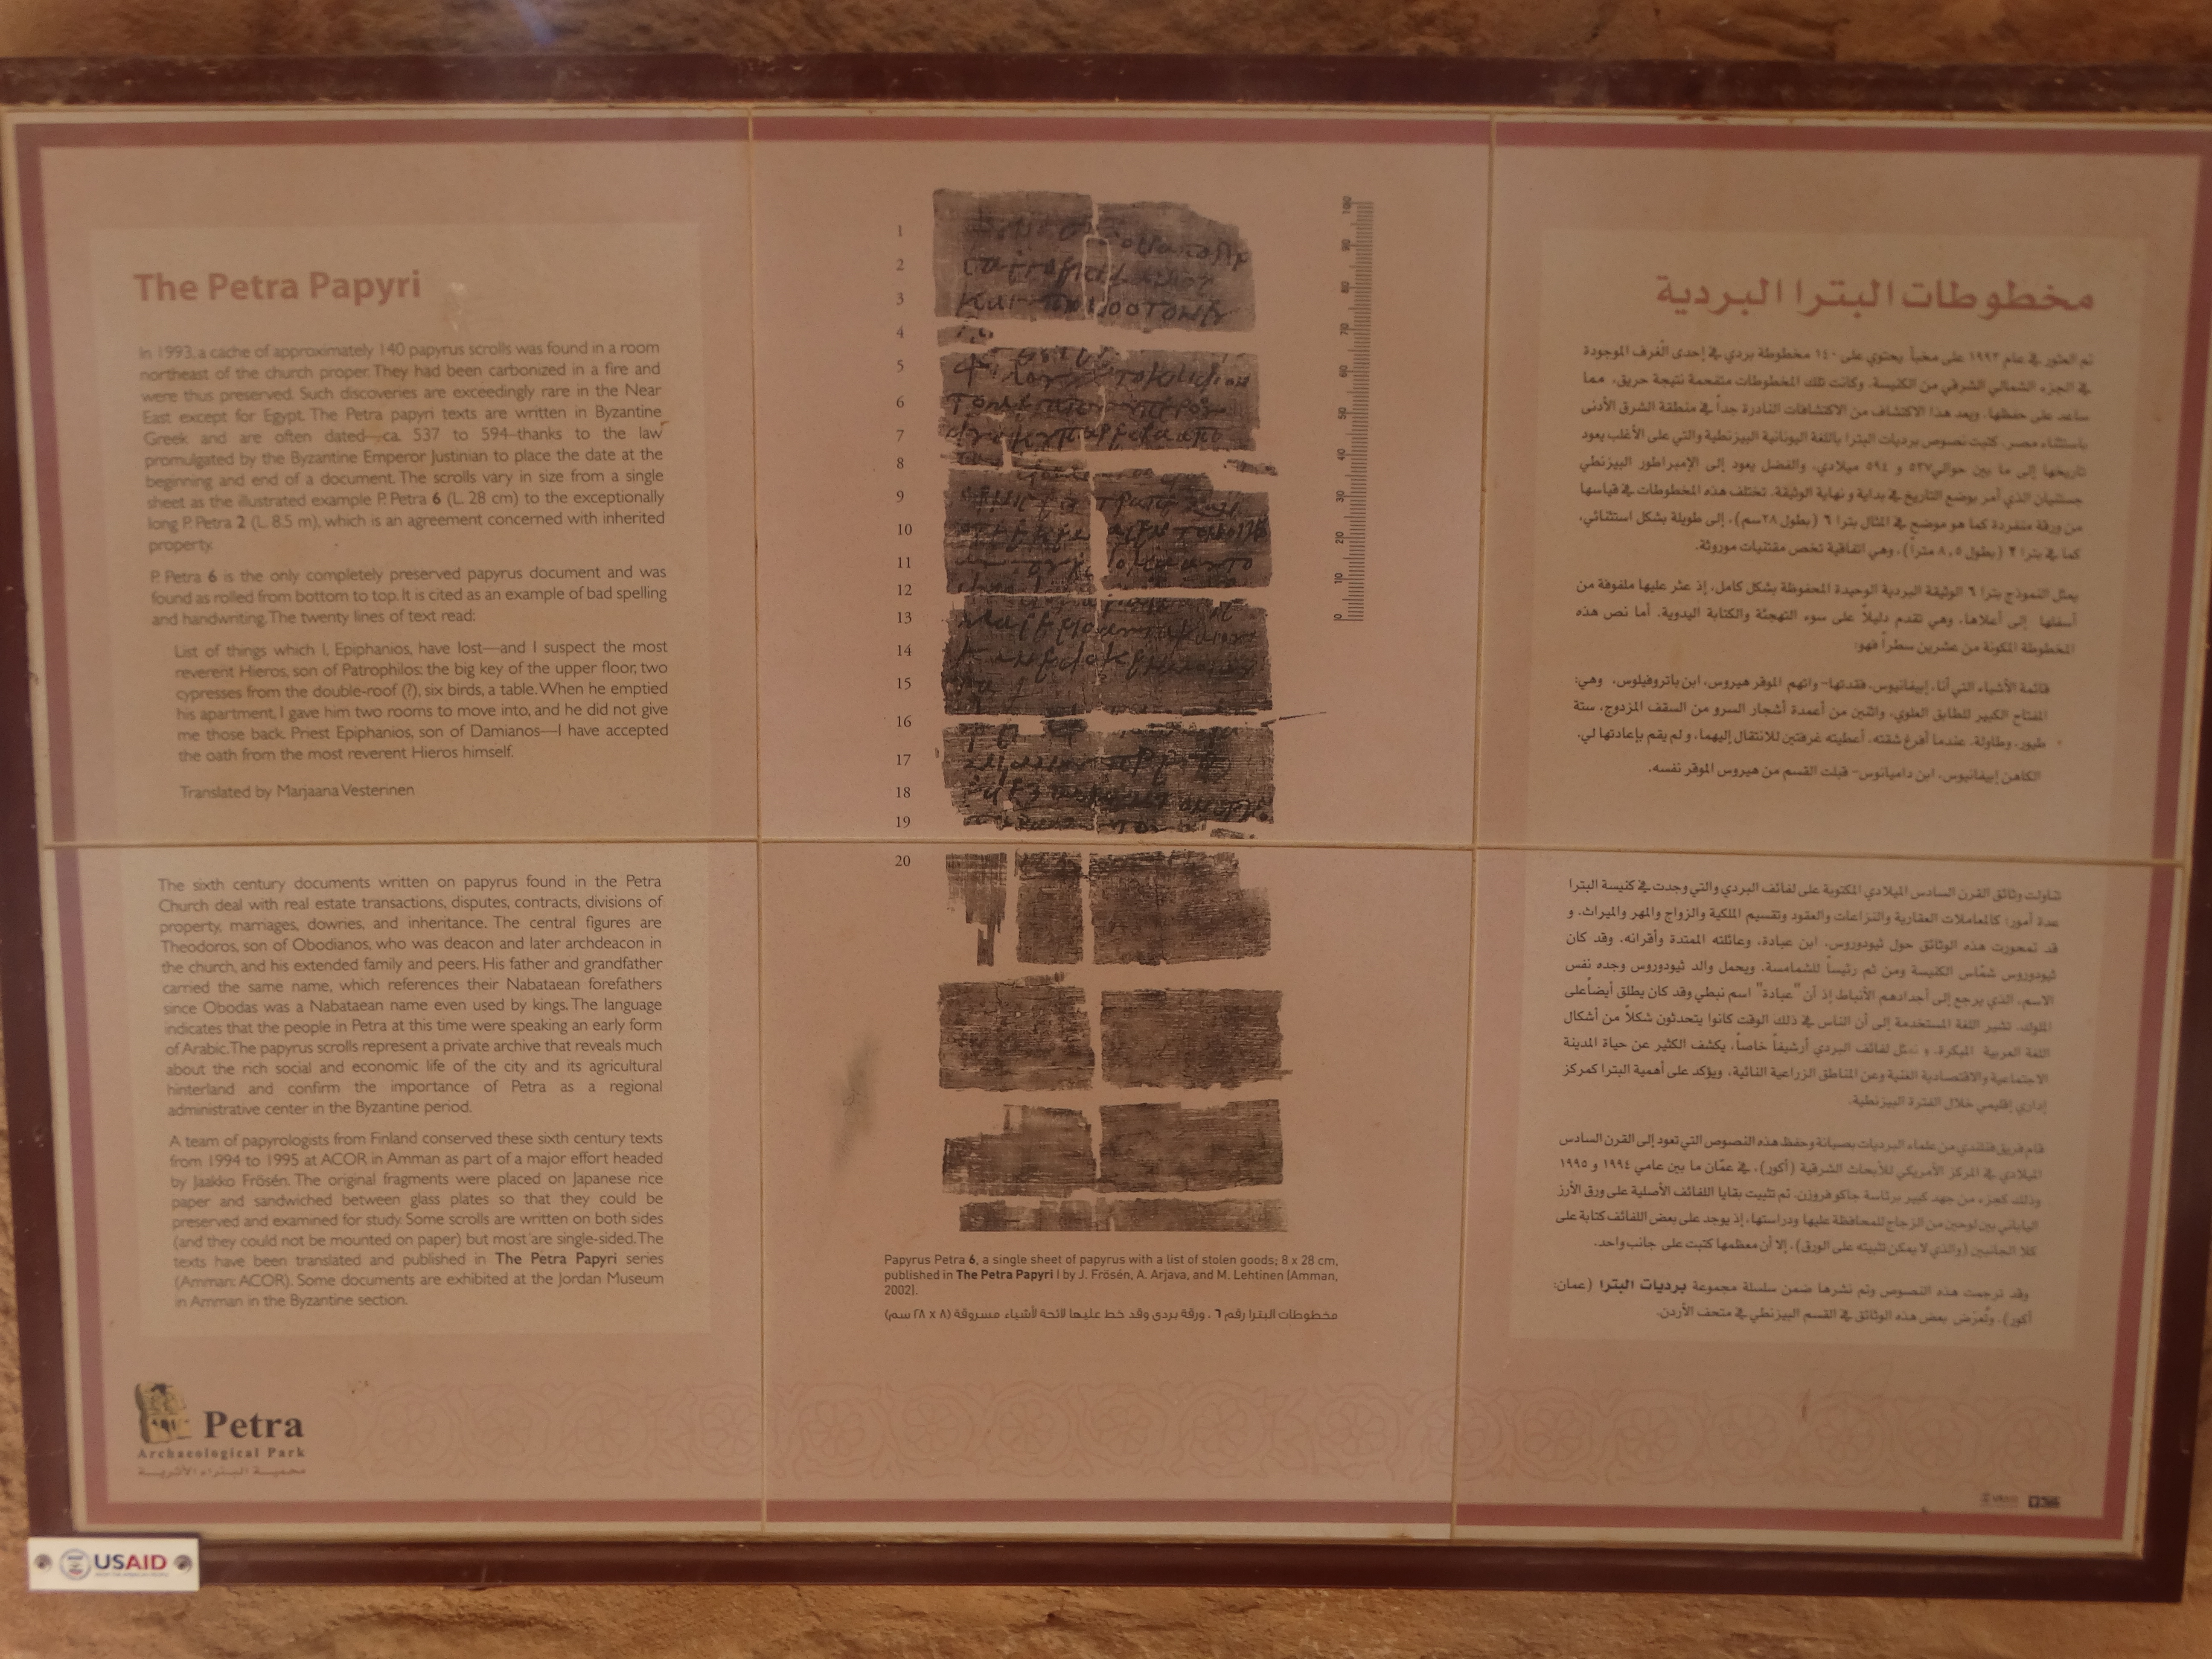 The Petra Papyri
In 1993, a cache of approximately 140 papyrus scrolls was found in a room
northeast of the church proper. They had been carbonized in a fire and
were thus preserved. Such discoveries are exceedingly rare in the Near
East except for Egypt. The Petra papyri texts are written in Byzantine
Greek and are often dated—ca. 537 to 594—thanks to the law
promulgated by the Byzantine Emperor Justinian to place the date at the
beginning and end of a document. The scrolls vary in size from a single
sheet as the illustrated example P. Petra 6 (L. 28 cm) to the exceptionally
long P. Petra 2 (L. 8.5 m), which is an agreement concerned with inherited
property.
P. Petra 6 is the only completely preserved papyrus document and was
found as rolled from bottom to top. It is cited as an example of bad spelling
and handwriting. The twenty lines of text read:
List of things which I, Epiphanios, have lost—and I suspect the most
reverent Hieros, son of Patrophilos: the big key of the upper floor, two
cypresses from the double-roof (?), six birds, a table. When he emptied
his apartment, I gave him two rooms to move into, and he did not give
me those back. Priest Epiphanios, son of Damianos—I have accepted
the oath from the most reverent Hieros himself.
Translated by Marjaana Vesterinen
The sixth century documents written on papyrus found in the Petra
Church deal with real estate transactions, disputes, contracts, divisions of
property, marriages, dowries, and inheritance. The central figures are
Theodoros, son of Obodianos, who was deacon and later archdeacon in
the church, and his extended family and peers. His father and grandfather
carried the same name, which references their Nabataean forefathers
since Obodas was a Nabataean name even used by kings. The language
indicates that the people in Petra at this time were speaking an early form
of Arabic. The papyrus scrolls represent a private archive that reveals much
about the rich social and economic life of the city and its agricultural
hinterland and confirm the importance of Petra as a regional
administrative center in the Byzantine period.
A team of papyrologists from Finland conserved these sixth century texts
from 1994 to 1995 at ACOR in Amman as part of a major effort headed
by Jaakko Frösén. The original fragments were placed on Japanese rice
paper and sandwiched between glass plates so that they could be
preserved and examined for study. Some scrolls are written on both sides
(and they could not be mounted on paper) but most are single-sided. The
texts have been translated and published in The Petra Papyri series
(Amman: ACOR). Some documents are exhibited at the Jordan Museum
in Amman in the Byzantine section.
Petra
Archaeological Park
محمية البتراء الأثرية
USAID
1
2
3
4
5
6
7
8
9
10
11
12
13
14
15
16
17
18
19
20
100
90
80
70
60
50
40
30
20
10
0
Papyrus Petra 6, a single sheet of papyrus with a list of stolen goods; 8 x 28 cm,
published in The Petra Papyri I by J. Frösén, A. Arjava, and M. Lehtinen (Amman,
2002).
مخطوطات البترا رقم ٦ . ورقة بردى وقد خط عليها لائحة لأشياء مسروقة (٨ x ٢٨ سم)
مخطوطات البترا البردية
تم العثور في عام ١٩٩٣ على مخبأ يحتوي على ١٤٠ مخطوطة بردي في إحدى الغرف الموجودة
في الجزء الشمالي الشرقي من الكنيسة. وكانت تلك المخطوطات متفحمة نتيجة حريق، مما
ساعد على حفظها. ويعد هذا الاكتشاف من الاكتشافات النادرة جداً في منطقة الشرق الأدنى
باستثناء مصر. كتبت نصوص برديات البترا باللغة اليونانية البيزنطية والتي على الأغلب يعود
تاريخها إلى ما بين حوالي ٥٣٧ و ٥٩٤ ميلادي، والفضل يعود إلى الإمبراطور البيزنطي
جستنيان الذي أمر بوضع التاريخ في بداية و نهاية الوثيقة. تختلف هذه المخطوطات في قياسها
من ورقة منفردة كما هو موضح في المثال بترا ٦ (بطول ٢٨سم)، إلى طويلة بشكل استثنائي،
كما في بترا ٢ (بطول ٨,٥ متراً)، وهي اتفاقية تخص مقتنيات موروثة.
يمثل النموذج بترا ٦ الوثيقة البردية الوحيدة المحفوظة بشكل كامل، إذ عثر عليها ملفوفة من
أسفلها إلى أعلاها، وهي تقدم دليلاً على سوء التهجئة والكتابة اليدوية. أما نص هذه
المخطوطة المكونة من عشرين سطراً فهو:
قائمة الأشياء التي أنا، إبيفانيوس، فقدتها- واتهم الموقر هيروس، ابن باتروفيلوس، وهي:
المفتاح الكبير للطابق العلوي، واثنين من أعمدة أشجار السرو من السقف المزدوج، ستة
طيور، وطاولة. عندما أفرغ شقته، أعطيته غرفتين للانتقال إليهما، و لم يقم بإعادتها لي.
الكاهن إبيفانيوس، ابن داميانوس- قبلت القسم من هيروس الموقر نفسه.
تناولت وثائق القرن السادس الميلادي المكتوبة على لفائف البردي والتي وجدت في كنيسة البترا
عدة أمور: كالمعاملات العقارية والنزاعات والعقود وتقسيم الملكية والزواج والمهر والميراث. و
قد تمحورت هذه الوثائق حول ثيودوروس، ابن عبادة، وعائلته الممتدة وأقرانه. وقد كان
ثيودوروس شمّاس الكنيسة ومن ثم رئيساً للشمامسة. ويحمل والد ثيودوروس وجده نفس
الاسم، الذي يرجع إلى أجدادهم الأنباط إذ أن "عبادة" اسم نبطي وقد كان يطلق أيضاً على
الملوك. تشير اللغة المستخدمة إلى أن الناس في ذلك الوقت كانوا يتحدثون شكلاً من أشكال
اللغة العربية المبكرة. و تمثل لفائف البردي أرشيفاً خاصاً، يكشف الكثير عن حياة المدينة
الاجتماعية والاقتصادية الغنية وعن المناطق الزراعية النائية، ويؤكد على أهمية البترا كمركز
إداري إقليمي خلال الفترة البيزنطية.
قام فريق فنلندي من علماء البرديات بصيانة وحفظ هذه النصوص التي تعود إلى القرن السادس
الميلادي في المركز الأمريكي للأبحاث الشرقية (أكور)، في عمّان ما بين عامي ١٩٩٤ و ١٩٩٥
وذلك كجزء من جهد كبير برئاسة جاكو فروزن. تم تثبيت بقايا اللفائف الأصلية على ورق الأرز
الياباني بين لوحين من الزجاج للمحافظة عليها ودراستها، إذ يوجد على بعض اللفائف كتابة على
كلا الجانبين (والذي لا يمكن تثبيته على الورق)، إلا أن معظمها كتبت على جانب واحد.
وقد ترجمت هذه النصوص وتم نشرها ضمن سلسلة مجموعة برديات البترا (عمان:
أكور). وتُعرض بعض هذه الوثائق في القسم البيزنطي في متحف الأردن.